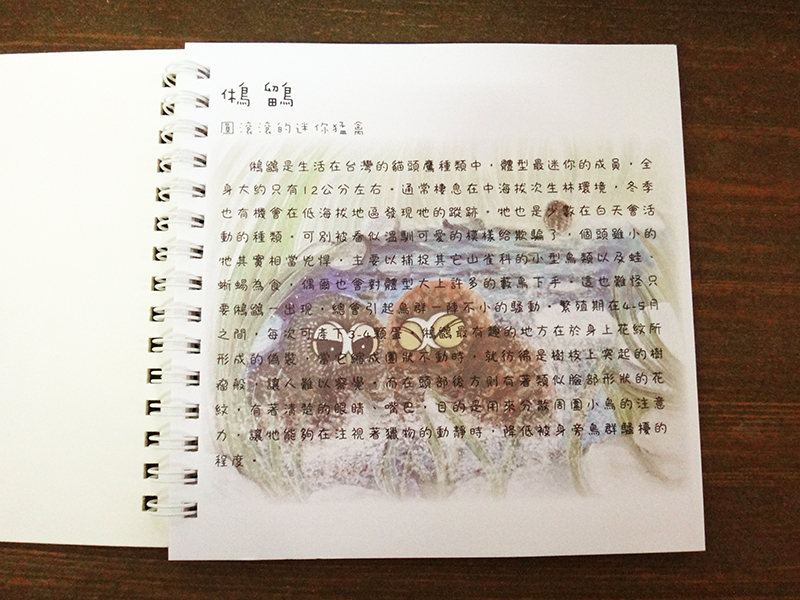 鵂鶹
圓滾滾的迷你猛禽
鵂鶹是生活在台灣的貓頭鷹種類中，體型最迷你的成員，全
身大約只有12公分左右。通常棲息在中海拔次生林環境，冬季
也有機會在低海拔地區發現牠的蹤跡。牠也是少數在白天會活
動的種類，可別被看似溫馴可愛的模樣給欺騙了，個頭雖小的
牠其實相當兇悍，主要以捕捉其它山雀科的小型鳥類以及蛙、
蜥蜴為食，偶爾也會對體型大上許多的藪鳥下手，這也難怪只
要鵂鶹一出現，總會引起鳥群一陣不小的騷動。繁殖期在4-5月
之間，每次可產下3-4顆蛋。鵂鶹最有趣的地方在於身上花紋所
形成的偽裝，當它縮成團狀不動時，就彷彿是樹枝上突起的樹
瘤般，讓人難以察覺。而在頭部後方則有著類似臉部形狀的花
紋，有著清楚的眼睛、嘴巴，目的是用來分散周圍小鳥的注意
力，讓牠能夠在注視著獵物的動靜時，降低被身旁鳥群騷擾的
程度。